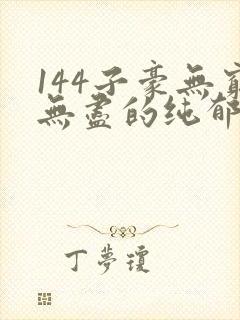 144子豪無窮
無盡的纯郁
丁夢瓊